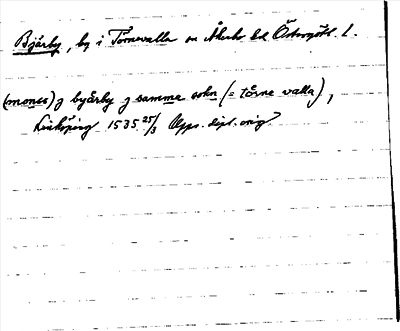 Bjärby, by i Törnevalla sn Åkerbo hd Östergötl. l.
(mones) j byårby j samma sokn (= törne valla),
Linköping 1535 25/3 Upps. dipl. orig.